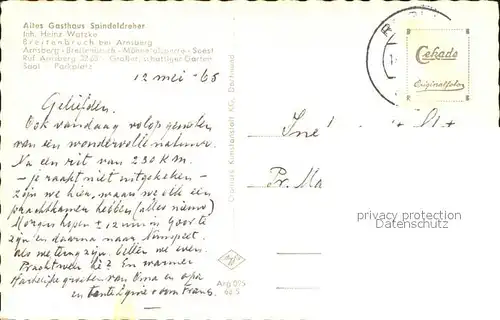 Altes Gasthaus Spindeldreher
Inh. Heinz Watzke
Breitenbruch bei Arnsberg
Arnsberg - Breitenbruch - Möhnetalsperre - Soest
Ruf Arnsberg Großer, schattiger Garten
Saal Parkplatz
12 mei - 68
Geliefden.
Ook vandaag volop genoten
van een wondervolle natuur.
Na een rit van 230 KM.
— je raakt niet uitgekeken —
zijn we hier, waar we elk een
prachtkamer hebben (alles nieuw)
Morgen hopen ± 12 uur in Goor te
zijn en daarna naar Nunspeet.
als we terug zijn, bellen we even.
Prachtweer hè? En warme
Hartelijke groeten van Oma en opa
en tante Lgine + oom Frans.
Cramers Kunstanstalt KG, Dortmund
Arg 025
Cekade
Originalfoto
Pr. Ma
privacy protection
Datenschutz